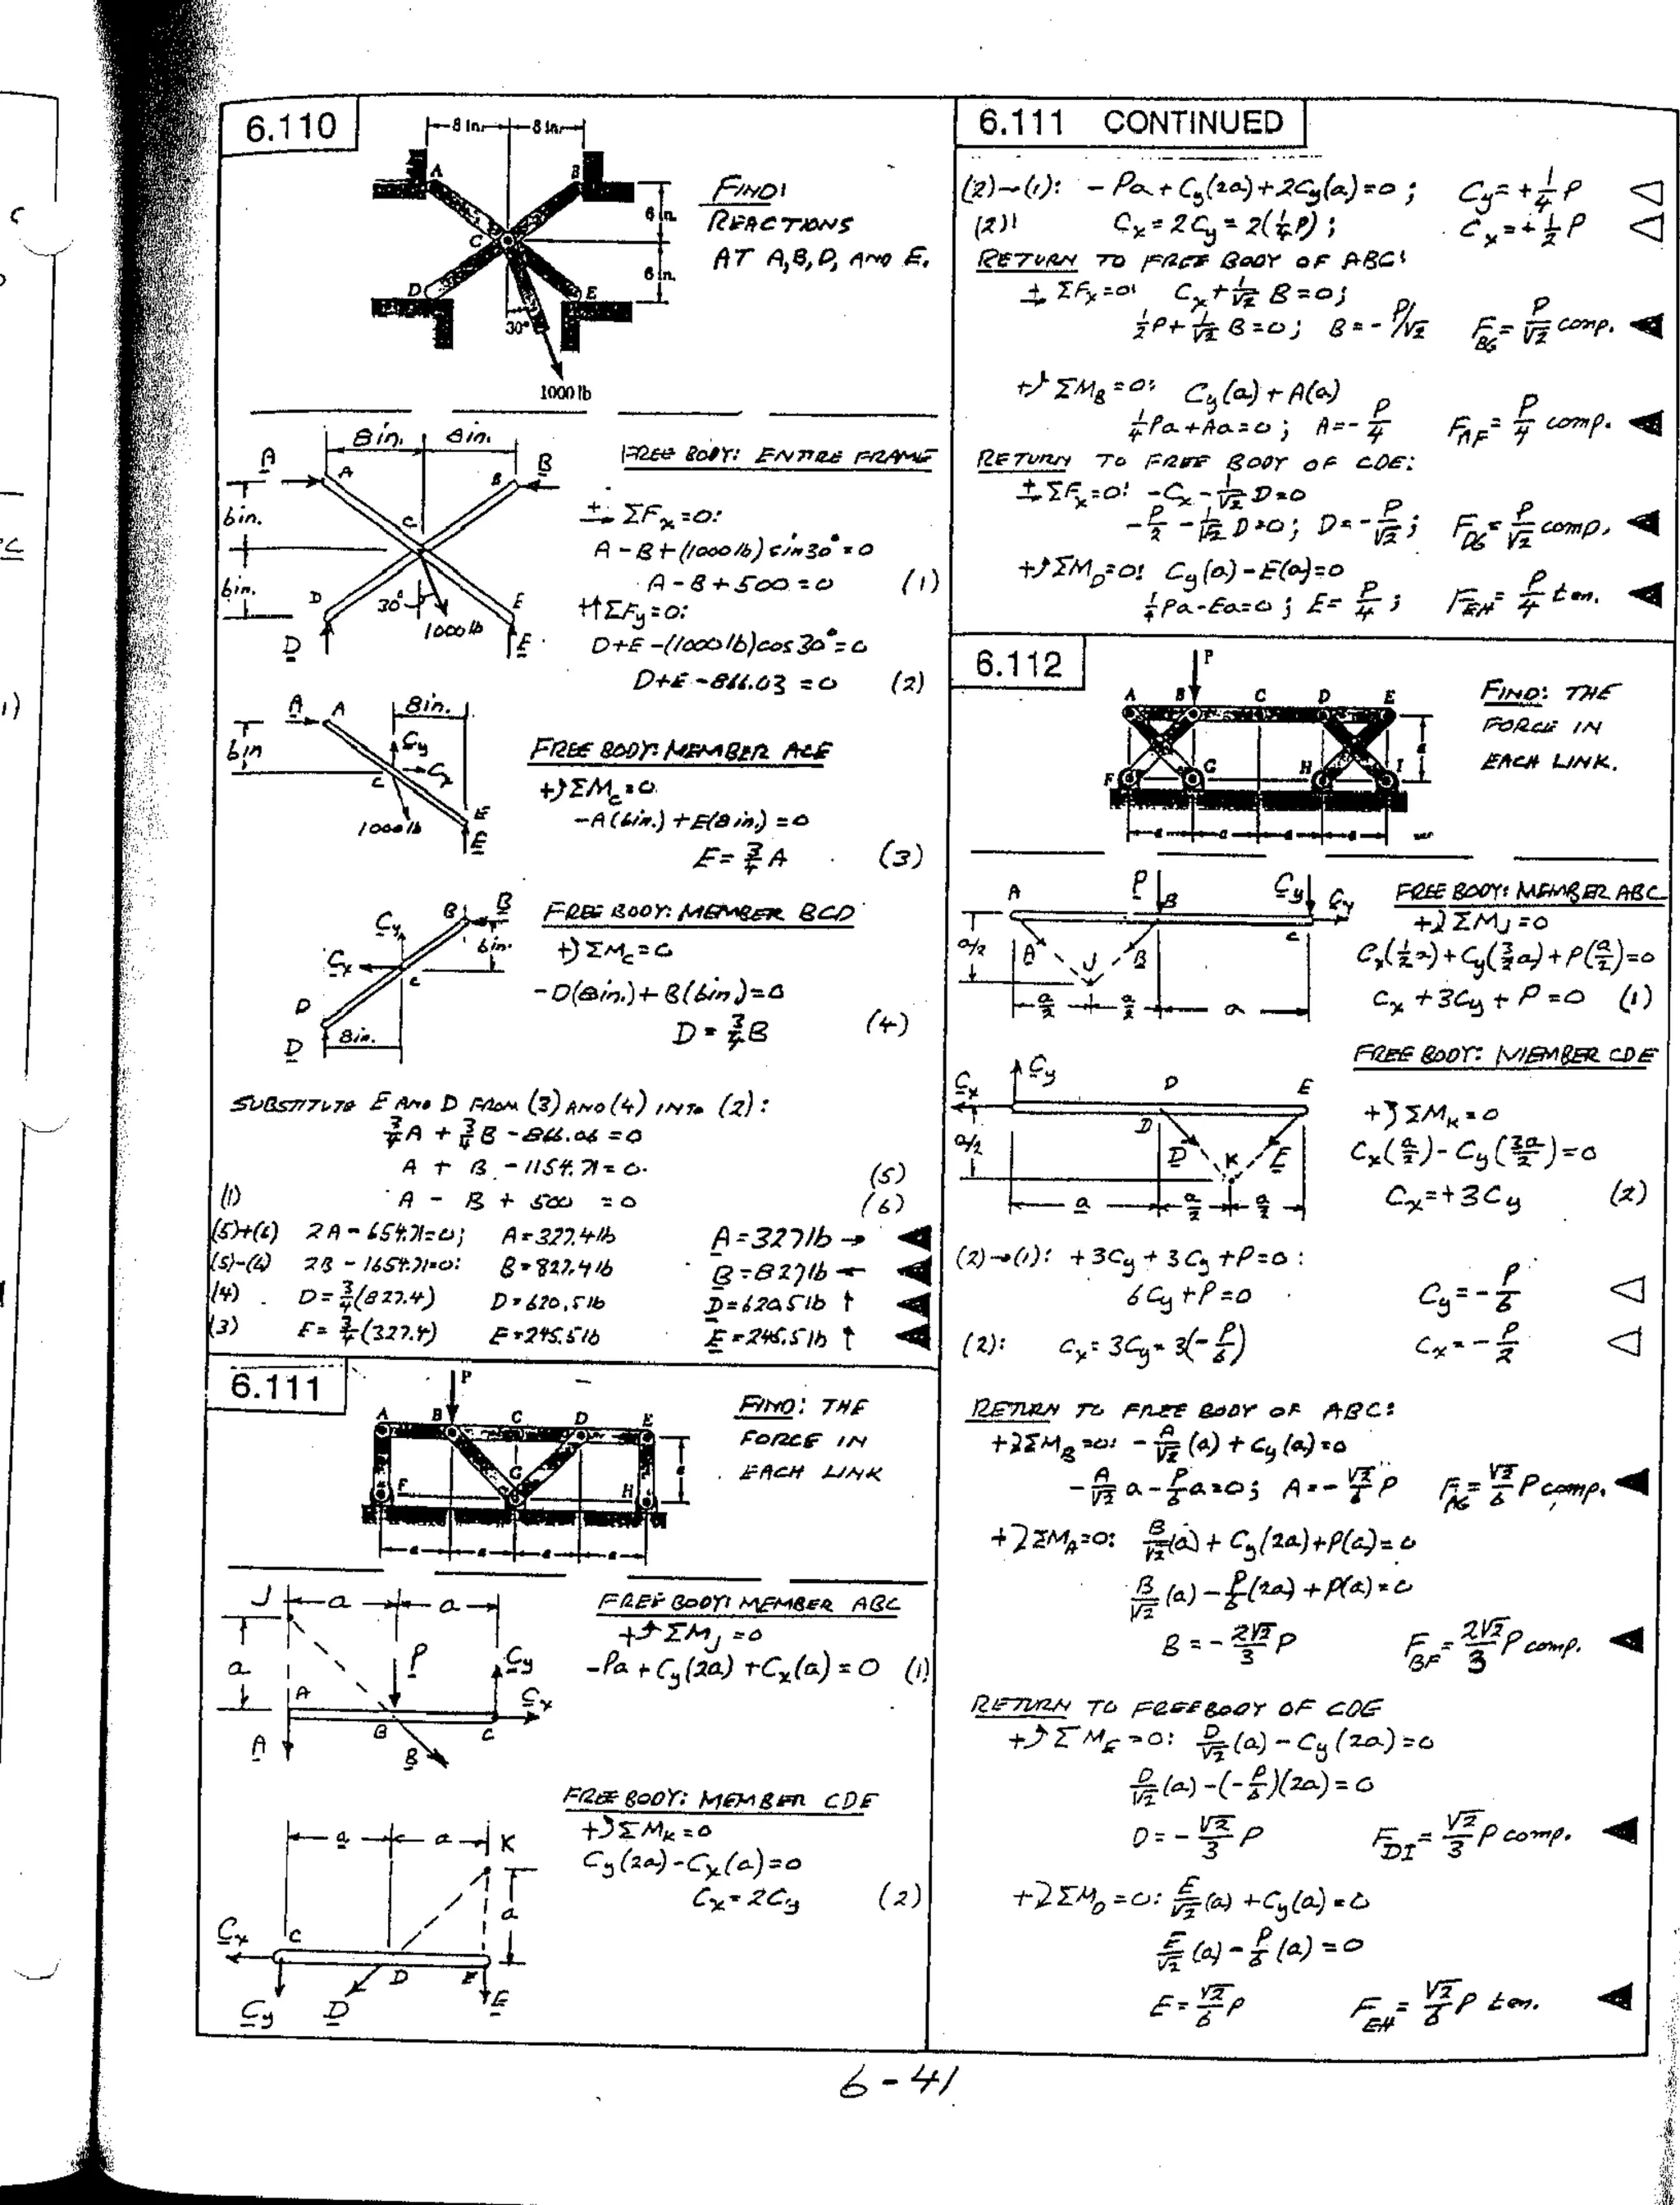 6.110
8 in. 8 in.
A B
6 in.
C
6 in.
D E
30°
1000 lb
FIND:
REACTIONS
AT A, B, D, AND E.
8 in. 8 in.
A A B B
6 in.
C
6 in.
D E
30° 1000 lb
D E
FREE BODY: ENTIRE FRAME
ΣFx = 0:
A - B + (1000 lb) sin 30° = 0
A - B + 500 = 0 (1)
+↑ΣFy = 0:
D + E - (1000 lb) cos 30° = 0
D + E - 866.03 = 0 (2)
A A 8 in.
6 in
Cy
Cx
C
1000 lb E
E
FREE BODY: MEMBER ACE
+ΣMc = 0
-A(6 in.) + E(8 in.) = 0
E = 3/4 A (3)
B B
Cy 6 in.
Cx C
D
D 8 in.
FREE BODY: MEMBER BCD
+ΣMc = 0
-D(8 in.) + B(6 in.) = 0
D = 3/4 B (4)
SUBSTITUTE E AND D FROM (3) AND (4) INTO (2):
3/4 A + 3/4 B - 866.06 = 0
A + B - 1154.71 = 0 (5)
(1) A - B + 500 = 0 (6)
(5)+(6) 2A - 654.71 = 0; A = 327.4 lb A = 327 lb →
(5)-(6) 2B - 1654.71 = 0: B = 827.4 lb B = 827 lb ←
(4) D = 3/4 (827.4) D = 620.5 lb D = 620.5 lb ↑
(3) E = 3/4 (327.4) E = 245.5 lb E = 245.5 lb ↑
6.111
P
A B C D E
F G H
a
a a a a
FIND: THE
FORCE IN
EACH LINK
J a a
a P Cy
A Cx
B C
A B
FREE BODY: MEMBER ABC
+ΣMJ = 0
-Pa + Cy(2a) + Cx(a) = 0 (1)
a a K
a
Cx C
D E
Cy D E
FREE BODY: MEMBER CDE
+ΣMK = 0
Cy(2a) - Cx(a) = 0
Cx = 2Cy (2)
6.111 CONTINUED
(2)→(1): -Pa + Cy(2a) + 2Cy(a) = 0; Cy = +1/4 P
(2): Cx = 2Cy = 2(1/4 P); Cx = +1/2 P
RETURN TO FREE BODY OF ABC:
ΣFx = 0: Cx + 1/√2 B = 0;
1/2 P + 1/√2 B = 0; B = -P/√2 F_BG = P/√2 comp.
+ΣMB = 0: Cy(a) + A(a)
1/4 Pa + Aa = 0; A = -P/4 F_AF = P/4 comp.
RETURN TO FREE BODY OF CDE:
ΣFx = 0: -Cx - 1/√2 D = 0
-P/2 - 1/√2 D = 0; D = -P/√2; F_DG = P/√2 comp.
+ΣMD = 0: Cy(a) - E(a) = 0
1/4 Pa - Ea = 0; E = P/4; F_EH = P/4 ten.
6.112
P
A B C D E
F G H I
a
a a a a
FIND: THE
FORCE IN
EACH LINK.
A P B Cy Cx
C
a/2 A J B
a/2 a/2 a
FREE BODY: MEMBER ABC
+ΣMJ = 0
Cx(1/2 a) + Cy(3/2 a) + P(a/2) = 0
Cx + 3Cy + P = 0 (1)
Cx Cy D E
D
a/2 D K E
a a/2 a/2
FREE BODY: MEMBER CDE
+ΣMK = 0
Cx(a/2) - Cy(3a/2) = 0
Cx = +3Cy (2)
(2)→(1): +3Cy + 3Cy + P = 0:
6Cy + P = 0 Cy = -P/6
(2): Cx = 3Cy = 3(-P/6) Cx = -P/2
RETURN TO FREE BODY OF ABC:
+ΣMB = 0: -A/√2 (a) + Cy(a) = 0
-A/√2 a - P/6 a = 0; A = -√2/6 P F_AG = √2/6 P comp.
+ΣMA = 0: B/√2 (a) + Cy(2a) + P(a) = 0
B/√2 (a) - P/6 (2a) + P(a) = 0
B = -2√2/3 P F_BF = 2√2/3 P comp.
RETURN TO FREE BODY OF CDE
+ΣME = 0: D/√2 (a) - Cy(2a) = 0
D/√2 (a) - (-P/6)(2a) = 0
D = -√2/3 P F_DI = √2/3 P comp.
+ΣMD = 0: E/√2 (a) + Cy(a) = 0
E/√2 (a) - P/6 (a) = 0
E = √2/6 P F_EH = √2/6 P ten.
6-41